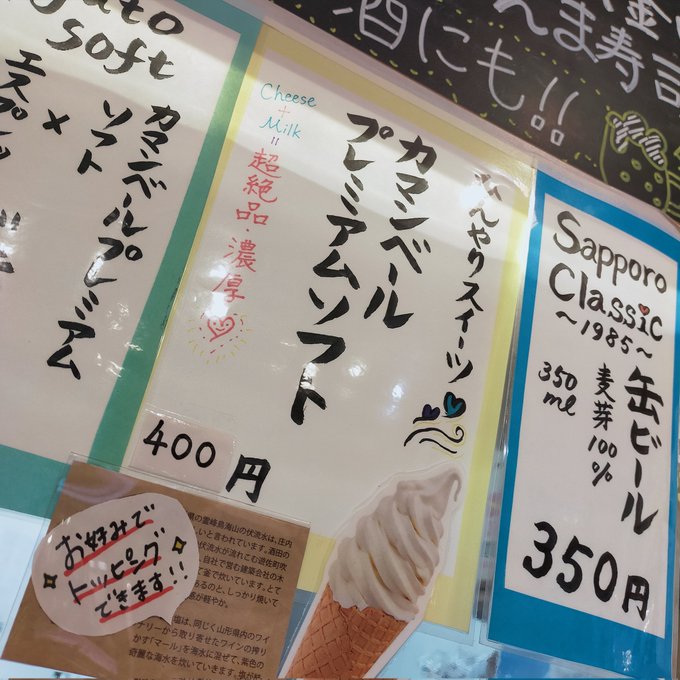 soft
カマンベールプレミアム
ソフト
×
Cheese
+
Milk
=
超絶品・濃厚
ひんやりスイーツ
カマンベール
プレミアムソフト
400円
酒にも!!
Sapporo
Classic
~1985~
缶ビール
麦芽100%
350ml
350円
お好みで
トッピング
できます!!
の霊峰鳥海山の伏流水は、庄内
いと言われています。酒田の
伏流水が流れこむ遊佐町吹
、自社で営む建築会社の木
て釜で炊いています。とて
あるのと、しっかり焼いて
感が軽やか。
塩は、同じく山形県内のワイ
ナリーから取り寄せたワインの搾り
かす「マール」を海水に混ぜて、紫色の
奇麗な海水を炊いていきます。